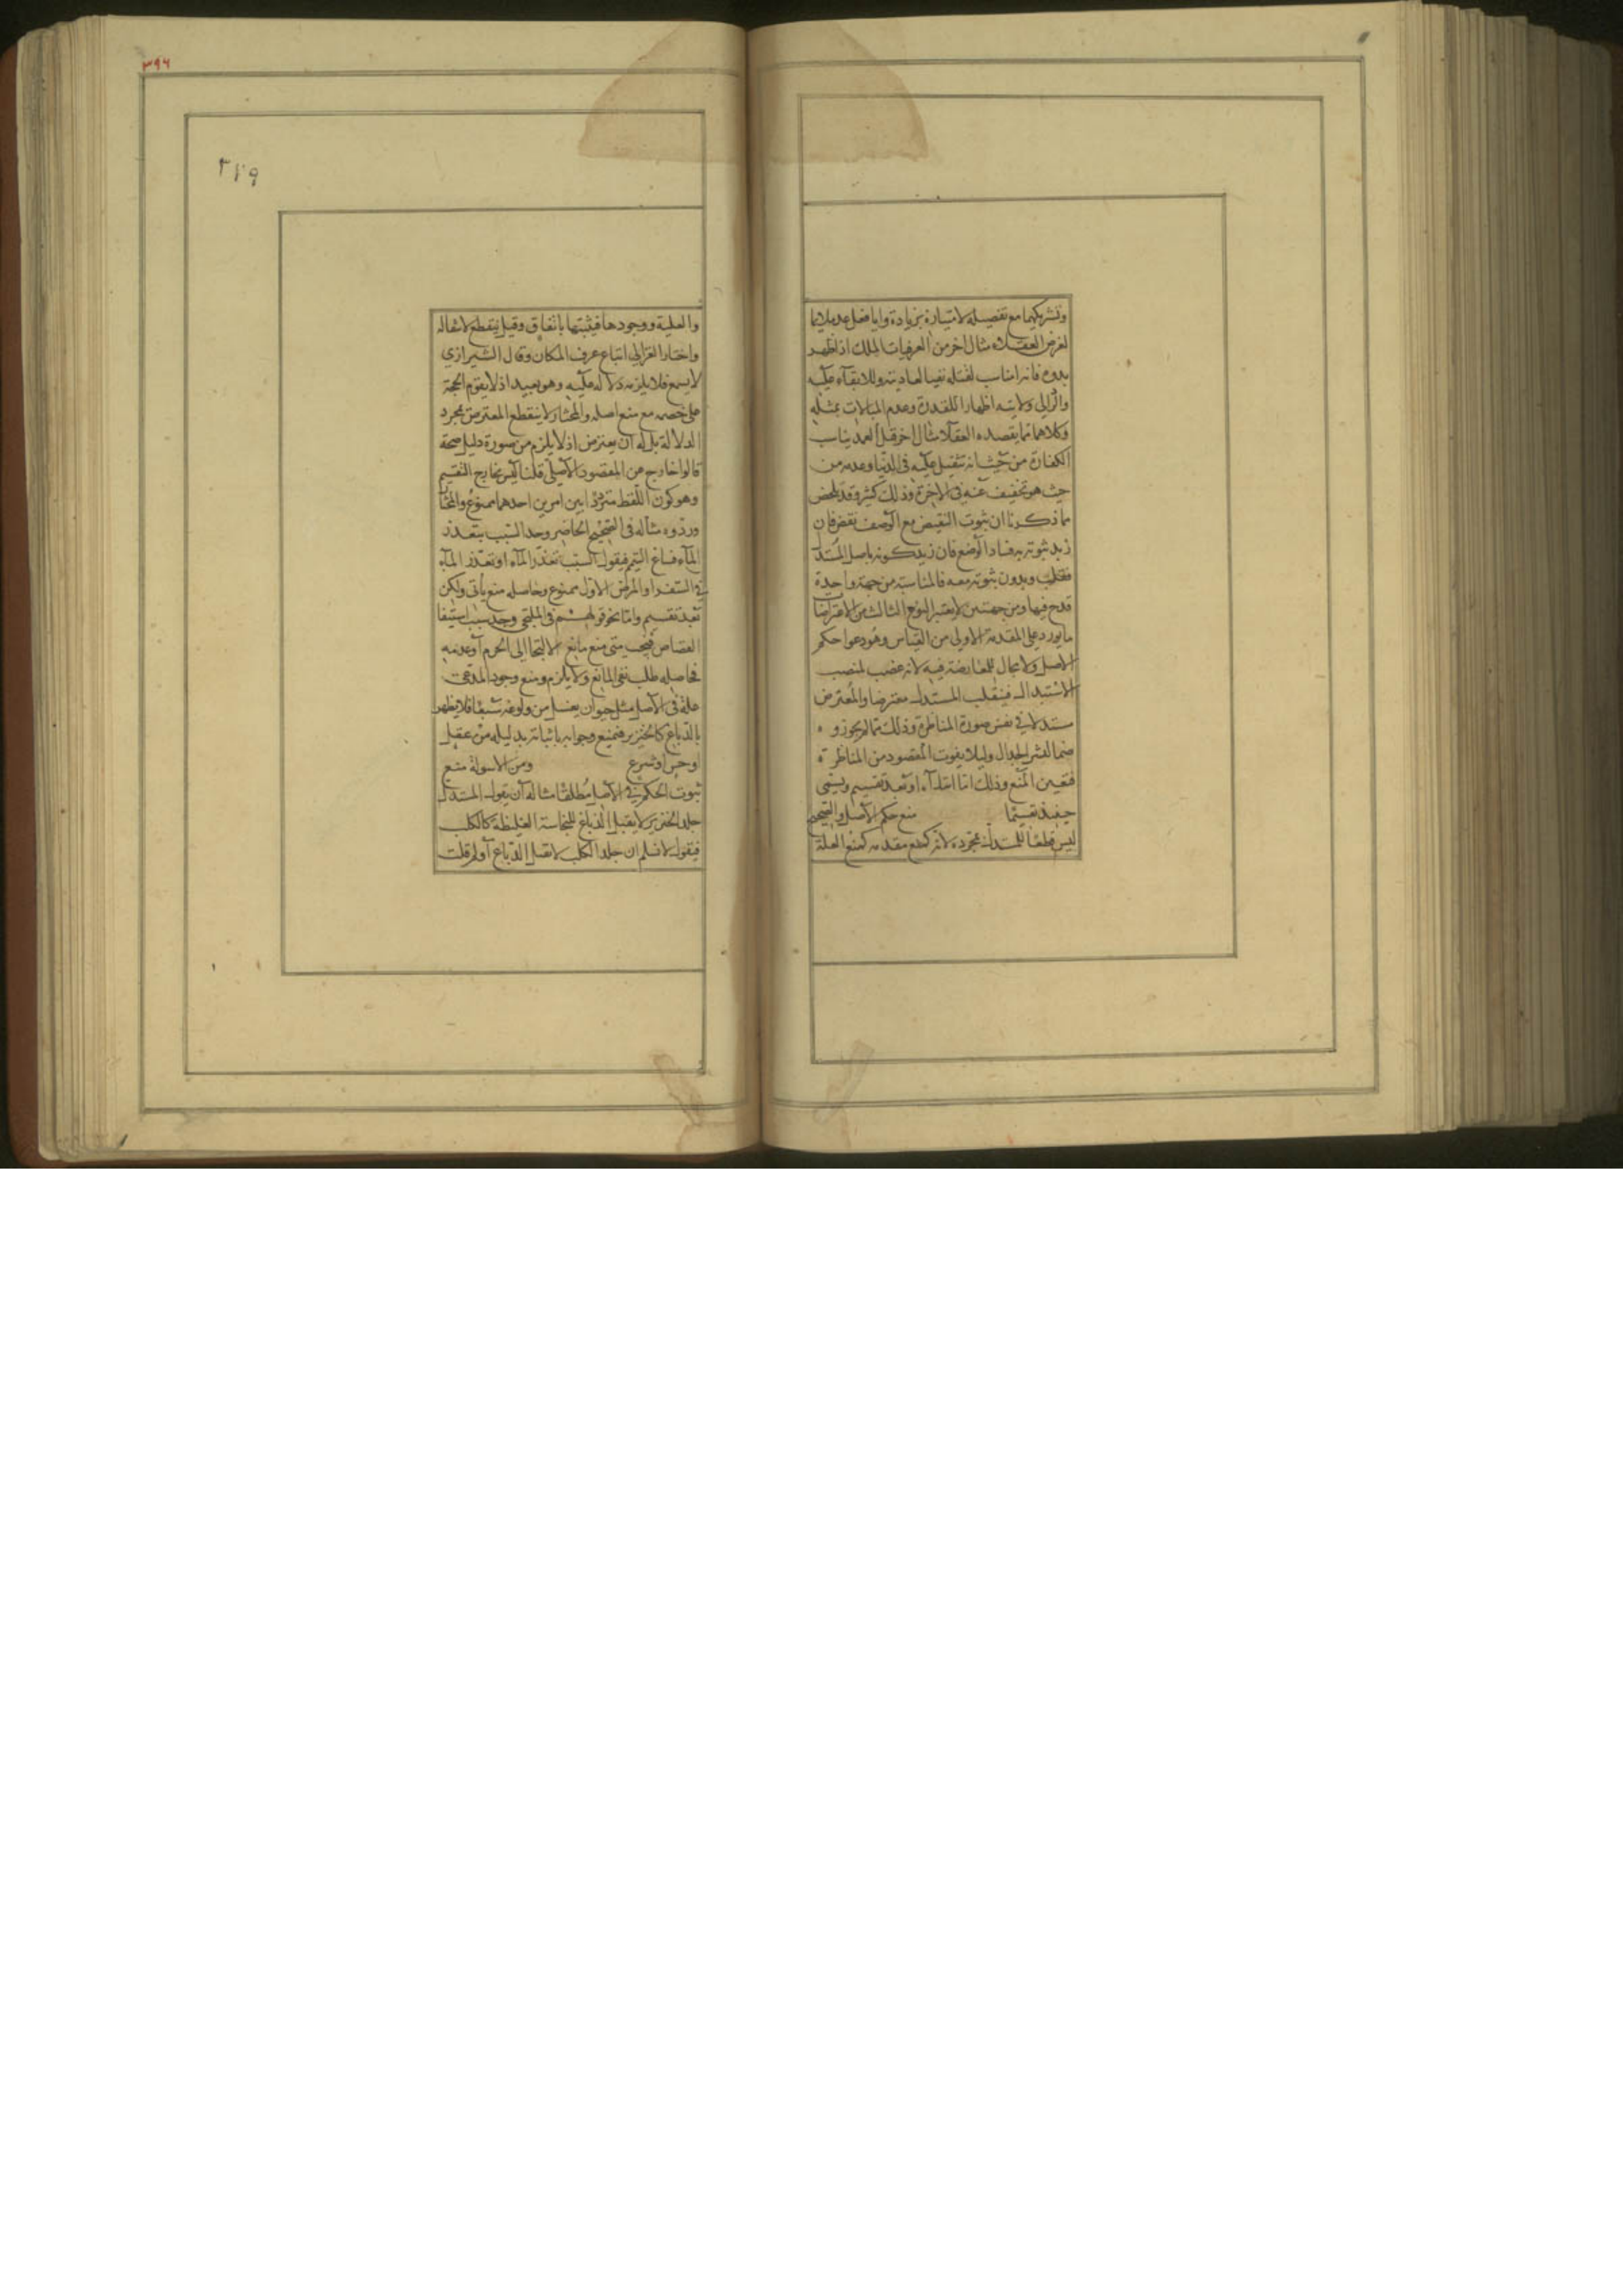 وتشريكهما مع تفصيله لامتيازه بزيادة وايا فعل عد ملايما
لغرض العقلاء مثال اخر من العرفيات الملك اذا ظهر
بعدوه فانه مناسب لقتله نفيا لعاديته وللابقاء عليه
والى ولايته اظهارا للقدرة وعدم المبالات بمثله
وكلاهما مما يقصده العقلا مثال اخر قتل العمد يناسب
الكفارة من حيث انه تثقيل عليه في الدنيا وعدمه من
حيث هو تخفيف عنه في الاخرة وذلك كثير وقد تلخص
مما ذكرنا ان ثبوت النقيض مع الوصف نقض فان
زيد ثبوته به فساد الوضع فان زيد كونه باصل المستدل
فقلب وبدون ثبوته معه فالمناسبة من جهة واحدة
قدح فيها ومن جهتين لا يعتبر النوع الثالث من الاعتراضات
ما يورد على المقدمة الاولى من القياس وهو دعوا حكم
الاصل ولا مجال للمعارضة فيه لانه غصب لمنصب
الاستبدال فينقلب المستدل معترضا والمعترض
مستدلا في نفس صورة المناظرة وذلك مما لم يجوزوه
ضما لنشر الجدال وليلا يفوت المقصود من المناظرة
فتعين المنع وذلك اما ابتداء او بعد تقسيم ويسمى
حينئذ تقسيما منع حكم الاصل والصحيح
ليس قطعا للمستدل بمجرده لانه كمنع مقدمه كمنع العلة
٣٩٦
٣١٩
والعلية ووجودها فيثبتها باتفاق وقيل ينقطع لانتقاله
واختار الغزالي اتباع عرف المكان وقال الشيرازي
لا يسمع فلا يلزمه دلالة عليه وهو بعيد اذ لا يقوم الحجة
على خصمه مع منع اصله والمختار لا ينقطع المعترض بمجرد
الدلالة بل له ان يعترض اذ لا يلزم من صورة دليل صحة
قالوا خارج عن المقصود الاصلي قلنا ليس بخارج التقسيم
وهو كون اللفظ مترددا بين امرين احدهما ممنوع والمختار
وروده مثاله في الصحيح الحاضر وجد السبب بتعذر
الماء فساغ التيمم فيقول السبب تعذر الماء او تعذر الماء
في السفر او المرض الاول ممنوع وحاصله منع يأتي ولكن
بعد تقسيم واما نحو قولهم في الملتجى وجد سبب استيفا
القصاص فيجب متى منع مانع الالتجا الى الحرم او عدمه
فحاصله طلب نفي المانع ولا يلزم ومنع وجود المدعى
علة في الاصل مثل حيوان يغسل من ولوغه سبعا فلا يطهر
بالدباغ كالخنزير فيمنع وجوابه باثباته بدليله من عقل
او حس او شرع ومن الاسولة منع
ثبوت الحكم في الاصل مطلقا مثاله ان يقول المستدل
جلد الخنزير لا يقبل الدباغ للنجاسة الغليظة كالكلب
فيقول لا نسلم ان جلد الكلب لا يقبل الدباغ او لم قلت